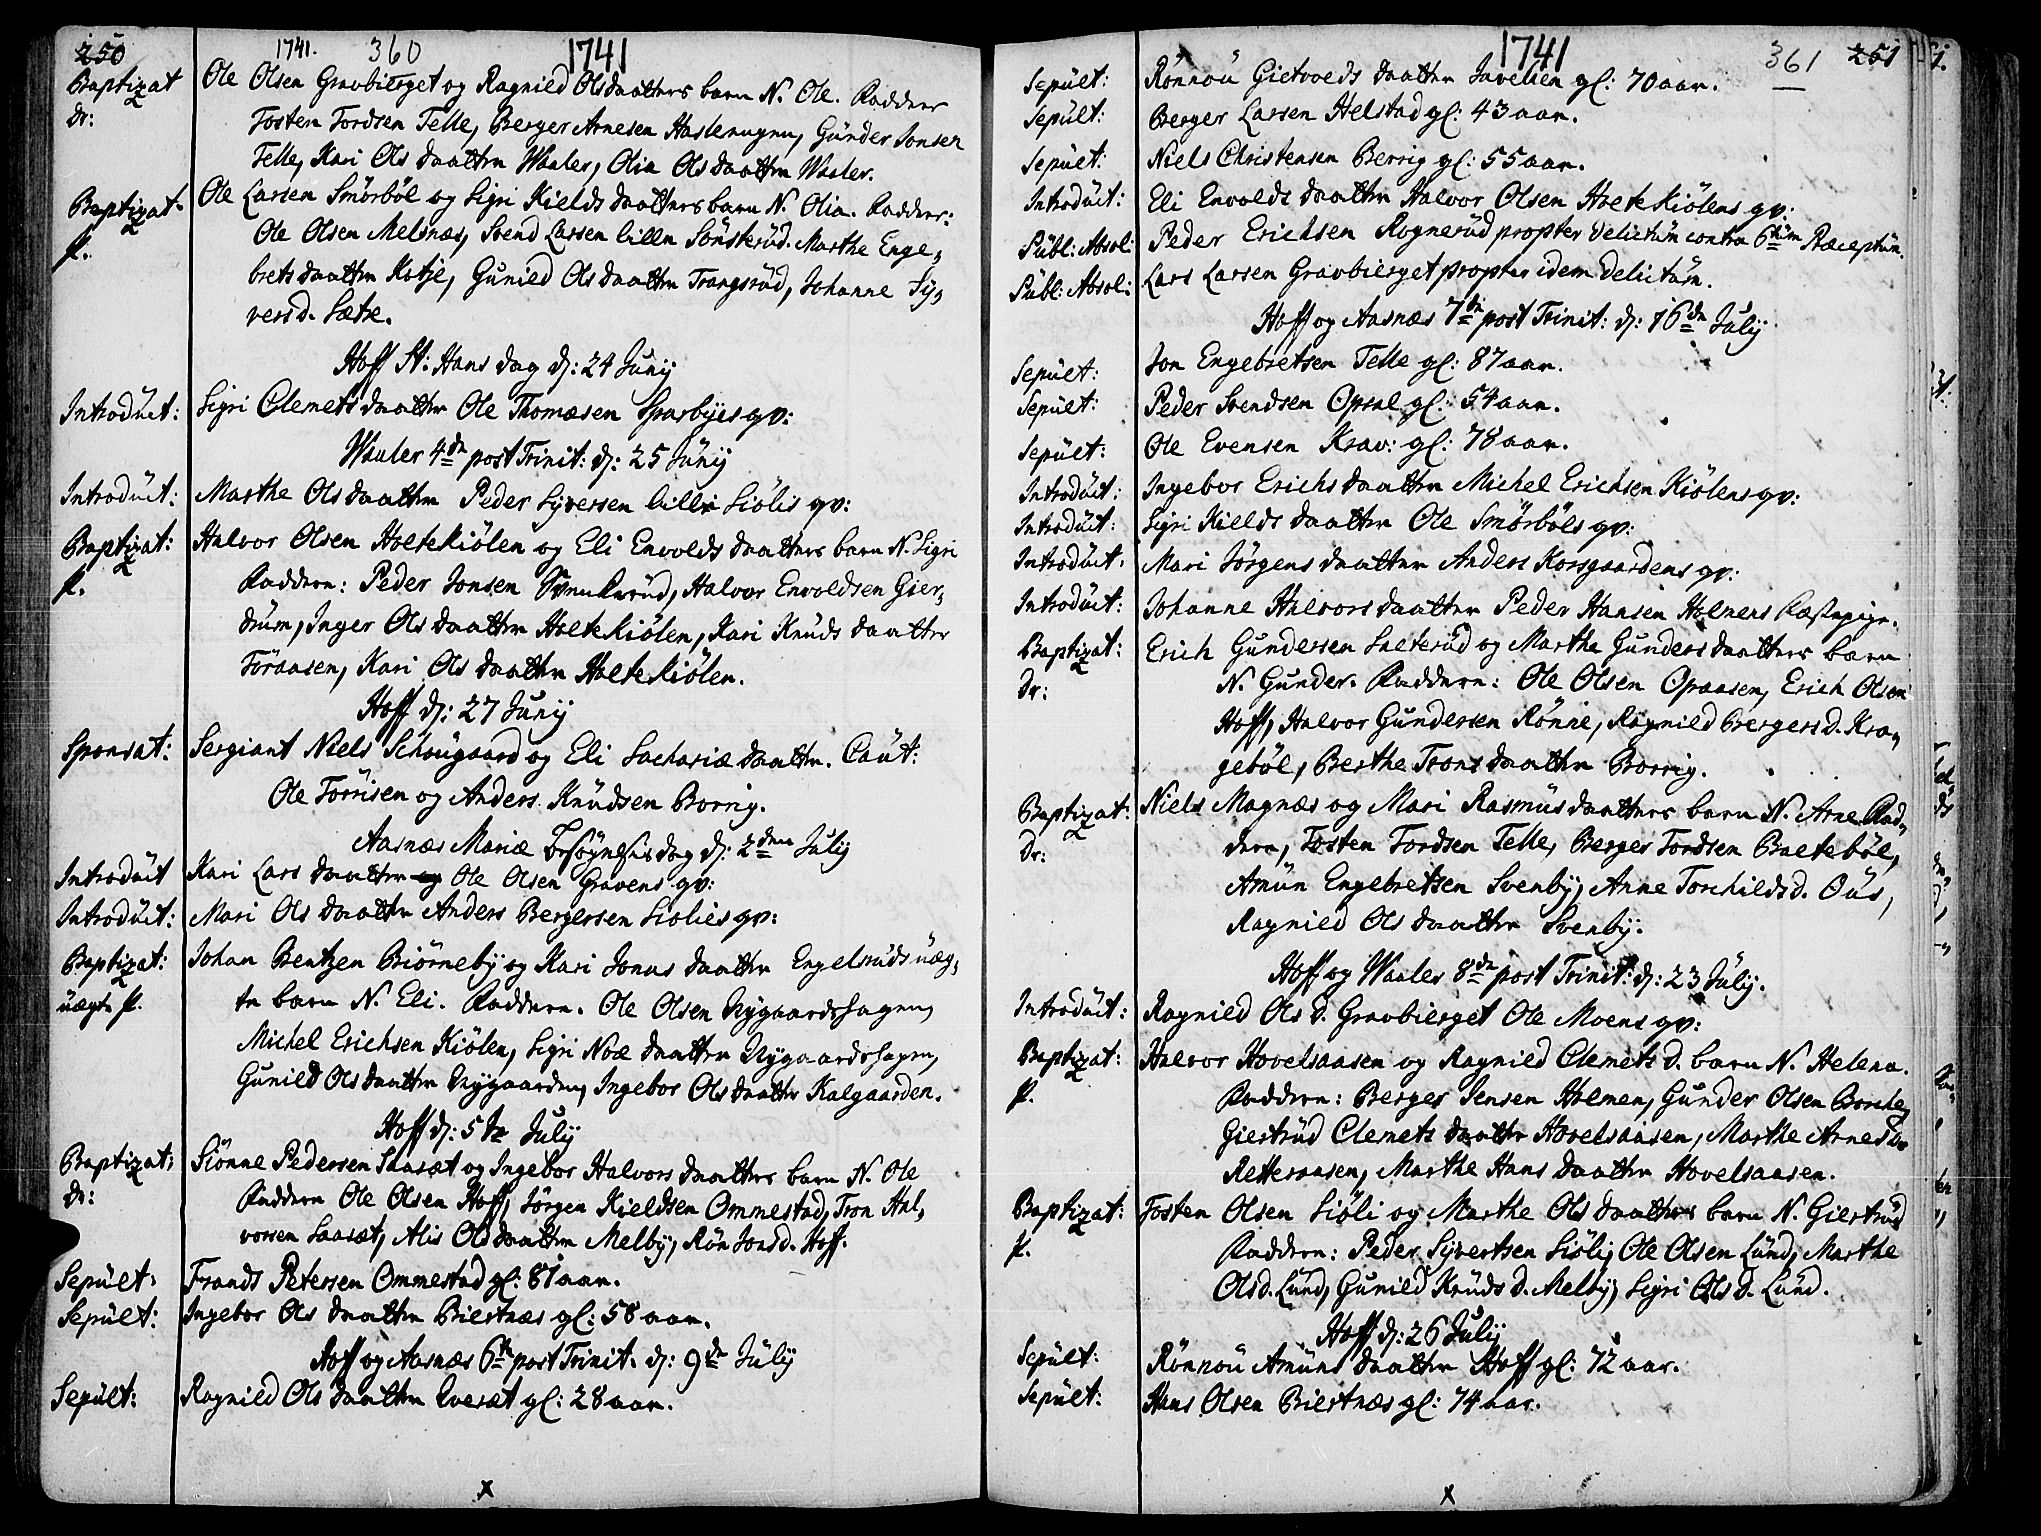 250 1741. 360 1741
Baptizat Ole Olsen Gravbierget og Ragnild Olsdaatters barn N. Ole. Faddere
Dr: Tosten Tordsen Telle, Berger Arnesen Haslerugen, Günder Jonsen
Telle, Kari Olsdaatter Waaler, Olia Olsdaatter Waaler.
Baptizat. Ole Larsen Smörböl og Sigri Kieldsdaatters barn N. Olia. Faddere:
P. Ole Olsen Melsnæs, Svend Larsen lille Sönsterüd. Marthe Enge-
bretsdaatter Kotje, Gunild Olsdaatter Trangsrüd, Johanne Sy-
versd. Sætre.
Hoff St: Hans dag d: 24 Junij
Introdüct: Sigri Clemetsdaatter Ole Thomæsen Sparbyes gv:
Waaler 4de post Trinit: d: 25 Jünij
Introdüit: Marthe Olsdaatter Peder Syversen lille Siölis gv:
Baptizat: Halvor Olsen Holtekiölen og Eli Envoldsdaatters barn N. Sigri
P. Faddere: Peder Jonsen Svenkerüd, Halvor Envoldsen Gier-
drüm, Inger Olsdaatter Holtekiölen, Kari Knüdsdaatter
Toraasen, Kari Olsdaatter Holtekiölen.
Hoff d: 27 Junij
Sponsat: Sergiant Niels Schougaard og Eli Sachariædaatter. Caüt:
Ole Törrisen og Anders Knüdsen Borrig.
Aasnæs Mariæ Besögnelses dag d: 2den Julij
Introdüit Kari Larsdaatter og Ole Olsen Gravens gv:
Introdüit: Mari Olsdaatter Anders Bergersen Siolies gv:
Baptizat: Johan Bentzen Biörneby og Kari Jonasdaatter Engelsrüds üæg-
üægte P. te barn N. Eli. Faddere. Ole Olsen Nygaardshagen,
Michel Erichsen Kiölen, Sigri Noædaatter Nygaardshagen,
Gunild Olsdaatter Nygaarden, Ingebor Olsdaatter Kalgaarden.
Hoff d: 5te Julij
Baptizat: Siönne Pedersen Saasæt og Ingebor Halvorsdaatters barn N. Ole
Dr: Faddere Ole Olsen Hoff, Jörgen Kieldsen Ommestad, Tron Hal-
vorsen Saasæt, Alis Olsdaatter Melby, Rön Jonsd. Hoff.
Sepült: Frands Petersen Ommestad gl: 81 aar.
Sepült: Ingebor Olsdaatter Biertnæs gl: 58 aar.
Hoff og Aasnæs 6te post Trinit. d: 9de Julij
Sepült: Ragnild Olsdaatter Qveræt gl: 28 aar.
x
1741 361 251
Sepült: Rönnou Gietvoldsdaatter Javelsen gl: 70 aar.
Sepült: Berger Larsen Helstad gl: 43 aar.
Sepült: Niels Christensen Berrig gl: 55 aar.
Introdüit: Eli Envoldsdaatter Halvor Olsen Holtekiölens gv:
Pübl: Absol: Peder Erichsen Rognerüd propter delictüm contra 6tüm Præceptüm.
Pübl: Absol: Lars Larsen Gravbierget propter idem delictüm.
Hoff og Aasnæs 7de post Trinit: d: 16de Julij
Sepült: Jon Engebretsen Telle gl: 87 aar.
Sepült: Peder Svendsen Opsal gl: 54 aar.
Sepült: Ole Evensen Krav: gl: 78 aar.
Introdüit: Ingebor Erichsdaatter Michel Erichsen Kiölens gv:
Introdüit: Sigri Kieldsdaatter Ole Smörböls gv:
Introdüit. Mari Jörgensdaatter Anders Korsgaardens gv:
Introdüit: Johanne Halvorsdaatter Peder Hansen Holmens Fæstepige.
Baptizat: Erich Gundersen Sæterüd og Marthe Gundersdaatters barn
Dr: N. Gunder. Faddere: Ole Olsen Opaasen, Erich Olsen
Hoff, Halvor Gündersen Rönne, Ragnild Bergersd. Kra-
geböl, Berthe Tronsdaatter Borrig.
Baptizat: Niels Magnæs og Mari Rasmüsdaatters barn N. Arne Fad-
Dr: dere, Tosten Tordsen Telle, Berger Tordsen Balteböl,
Amün Engebretsen Svenby, Anne Torchildsd. Oüs,
Ragnild Olsdaatter Svenby.
Hoff og Waaler 8de post Trinit: d: 23 Julij.
Introdüit: Ragnild Olsd. Gravbierget Ole Moens gv:
Baptizat: Halvor Hovelsaasen og Ragnild Clemetsd. barn N. Helena.
P. Faddere: Berger Jensen Holmen, Günder Olsen Borche,
Giertrüd Clemetsdaatter Hovelsaasen, Marthe Arnesd.
Retteraasen, Marthe Hansdaatter Hovelsaasen.
Baptizat: Tosten Olsen Siöli og Marthe Olsdaatters barn N. Giertrüd
P. Faddere: Peder Syvertsen Siöli, Ole Olsen Lünd, Marthe
Olsd. Lünd, Gunild Knüdsd. Melby, Sigri Olsd. Lünd.
Hoff d: 26 Julij
Sepült: Rönnou Amünsdaatter Hoff gl: 72 aar.
Sepült: Hans Olsen Biertnæs gl: 74 aar.
x